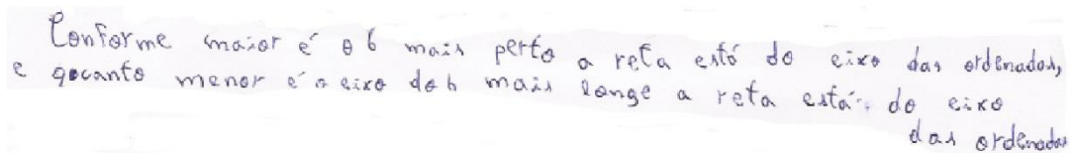 Conforme maior é o b mais perto a reta está do eixo das ordenadas,
e quanto menor é o eixo do b mais longe a reta está do eixo
das ordenadas